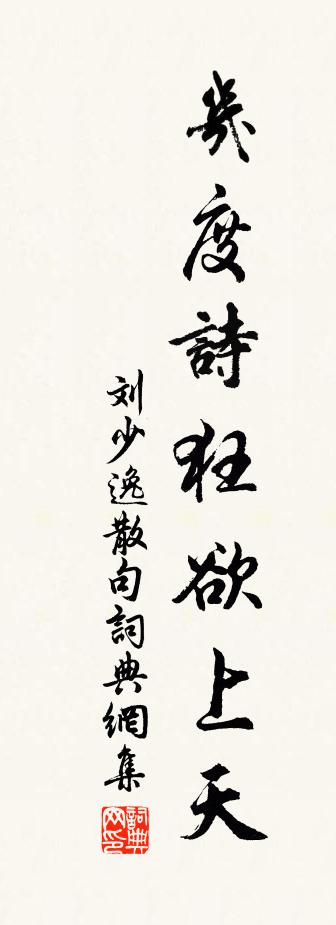 幾度詩狂欲上天
刘少逸散句詞典網集
詞典网印